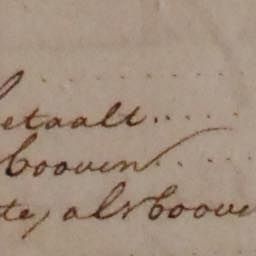 betaalt.....
booven....
te, als boove